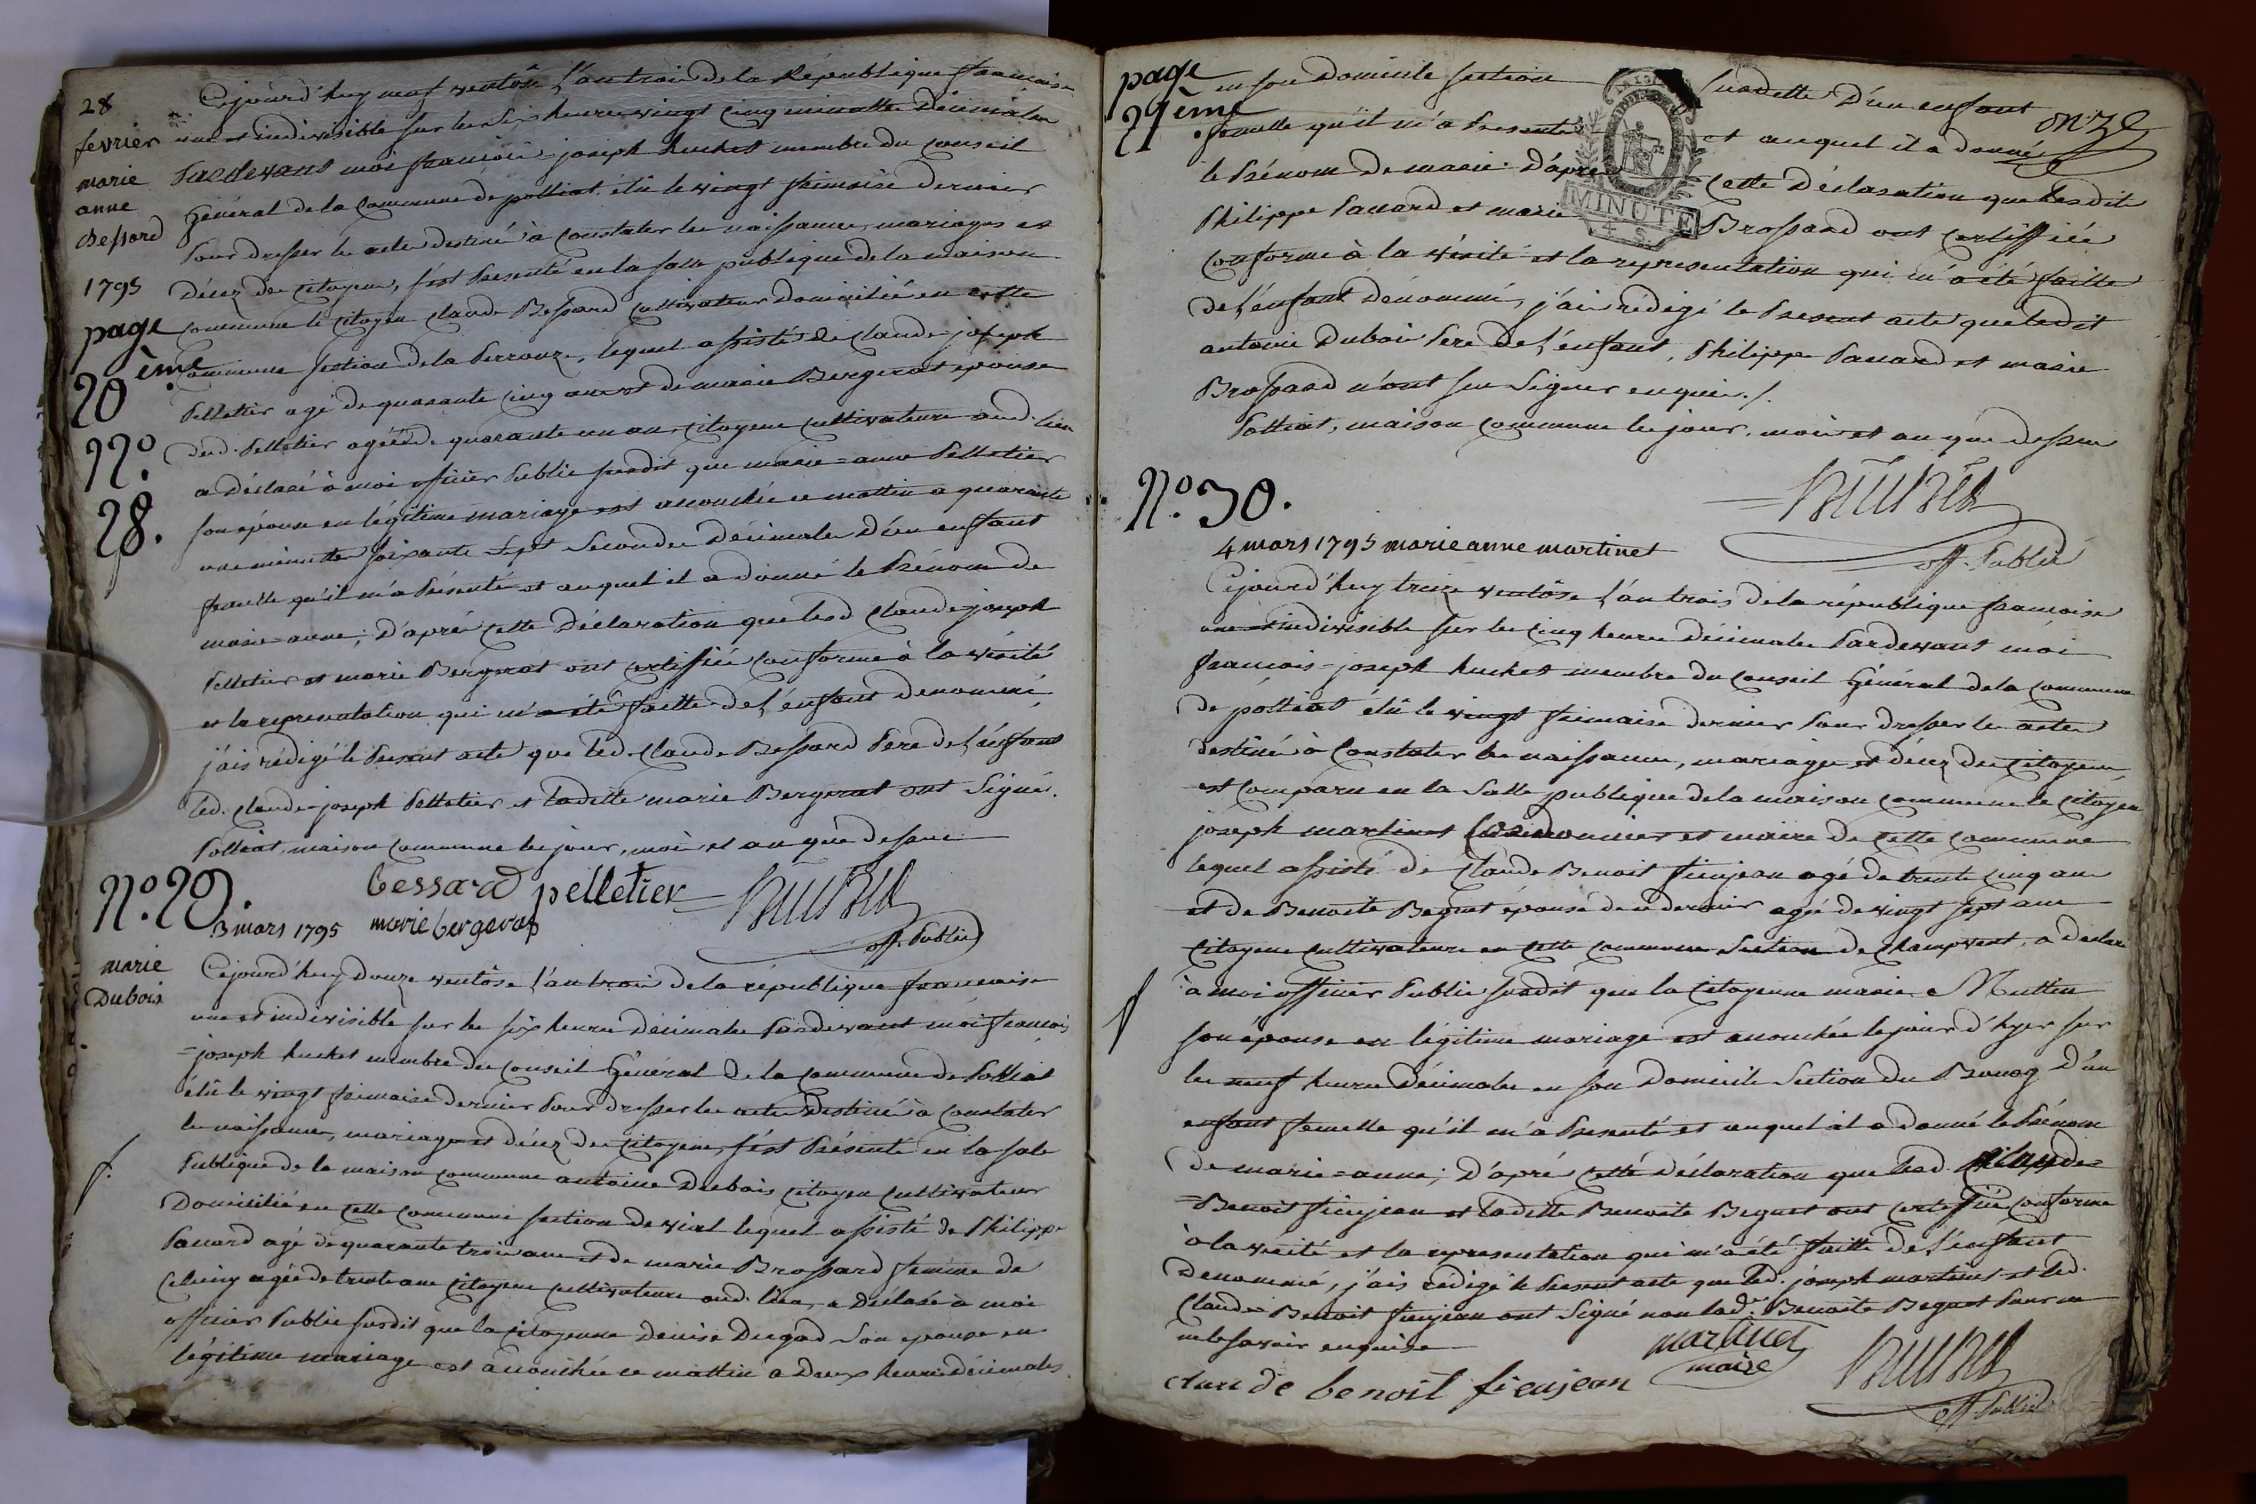 28
fevrier
marie
anne
Bessard
1795
page
20 ème
N.º
28.
Cejourd'huy neuf ventôse l'an trois de la République francaise
une et indivisible sur les six heures vingt cinq minuttes décimales
Pardevant moi françois-joseph huchet membre du conseil
Général de la commune de polliat élu le vingt frimaire dernier
Pour dresser les actes destinés à constater les naissances, mariages et
Décès des citoyens, s'est Présenté en la salle publique de la maison
commune le citoyen claude Bessard cultivateur domicilié en cette
commune section de la Perrouze, lequel assisté de claude-joseph
Pelletier agé de quarante cinq ans et de marie Bergerat epouse
dud. Pelletier agée de quarante un an, citoyens cultivateurs aud. lieu
a déclaré à moi officier Public susdit que marie-anne Pelletier
son épouse en légitime mariage est accouchée ce mattin a quarante
une minuttes soixante sept secondes Décimales D'un enfant
femelle qu'il m'a Présenté et auquel il a donné le Prénom de
marie-anne; D'après cette Déclaration que lesd claude-joseph
Pelletier et marie Bergerat ont certifiée conforme à la vérité
et la representation qui m'a été faitte de l'enfant denommé,
j'ais rédigé le Present acte que led. Claude Bessard Pere de l'enfant
led. claude-joseph Pelletier et ladite marie Bergerat ont Signé.
Polliat, maison commune les jour, mois et an que dessus
bessard pelletier huchet
marie bergerat off. Public
N.º 29.
3 mars 1795
marie
Dubois
Cejourd'huy douze ventôse l'an trois de la république francaise
une et indivisible sur les six heures décimales Pardevant moi francois
=joseph huchet membre du conseil Général de la commune de Polliat
élu le vingt frimaire dernier Pour dresser les actes destinés à constater
les naissances, mariages et décès des citoyens, s'est Présenté en la sale
Publique de la maison commune antoine Dubois citoyen cultivateur
Domicilié en cette commune section de vial lequel assisté de Philippe
Pauard agé de quarante trois ans et de marie Brossard femme de
celuicy agée de trente ans citoyens cultivateurs aud. lieu, a Déclaré à moi
officier Public susdit que la citoyenne Denise Dugad son epouse en
légitime mariage est accouchée ce mattin a Deux heures décimales
page
21ème
onze
en son Domicile section susdette D'un enfant
femelle qu'il m'a Presenté et auquel il a donné
le Prénom de marie. D'après cette Déclaration que lesdit
MINUTE
Philippe Pauard et marie Brossard ont certiffiée
conforme à la vérité et la representation qui m'a été faitte
de l'enfant dénommé, j'ai rédigé le Present acte que ledit
antoine Dubois Pere de l'enfant, Philippe Pauard et marie
Brossard n'ont su signer enquis./.
Polliat, maison commune les jour, mois et an que dessus
huchet
off. Public
N.º 30.
4 mars 1795 marie anne martinet
Cejourd'huy treize ventôse l'an trois de la république francaise
une et indivisible sur les cinq heures décimales Pardevant moi
francois-joseph huchet membre du conseil Général de la commune
de polliat élu le vingt frimaire dernier Pour dresser les actes
destinés à Constater les naissances, mariages et décès des citoyens,
est comparu en la Salle publique de la maison commune le citoyen
joseph martinet Cordonnier et maire de cette commune
lequel assisté de Claude Benoit fieujean agé de trente cinq ans
et de Benoite Beguet épouse de ce dernier agée de vingt sept ans
citoyens cultivateurs en cette commune Section de champvent, a declaré
à moi officier Public susdit que la citoyenne marie Muttin
son épouse en légitime mariage est accouchée le jour d'hyer sur
les neuf heures décimales en son Domicile Section du Bourg D'un
enfant femelle qu'il m'a Presenté et auquel il a donné le Prénom
de marie-anne; D'après cette déclaration que lesd. Claude=
=Benoit fieujean et ladite Benoite Beguet ont certiffiée conforme
à la vérité et la representation qui m'a été faitte de l'enfant
Denommé, j'ais rédigé le Present acte que led. joseph martinet et led.
Claude Benoit fieujean ont Signé non lad.e Benoite Beguet Pour ne
le savoir enquise
martinet
maire
huchet
claude benoit fieujean
off. Public